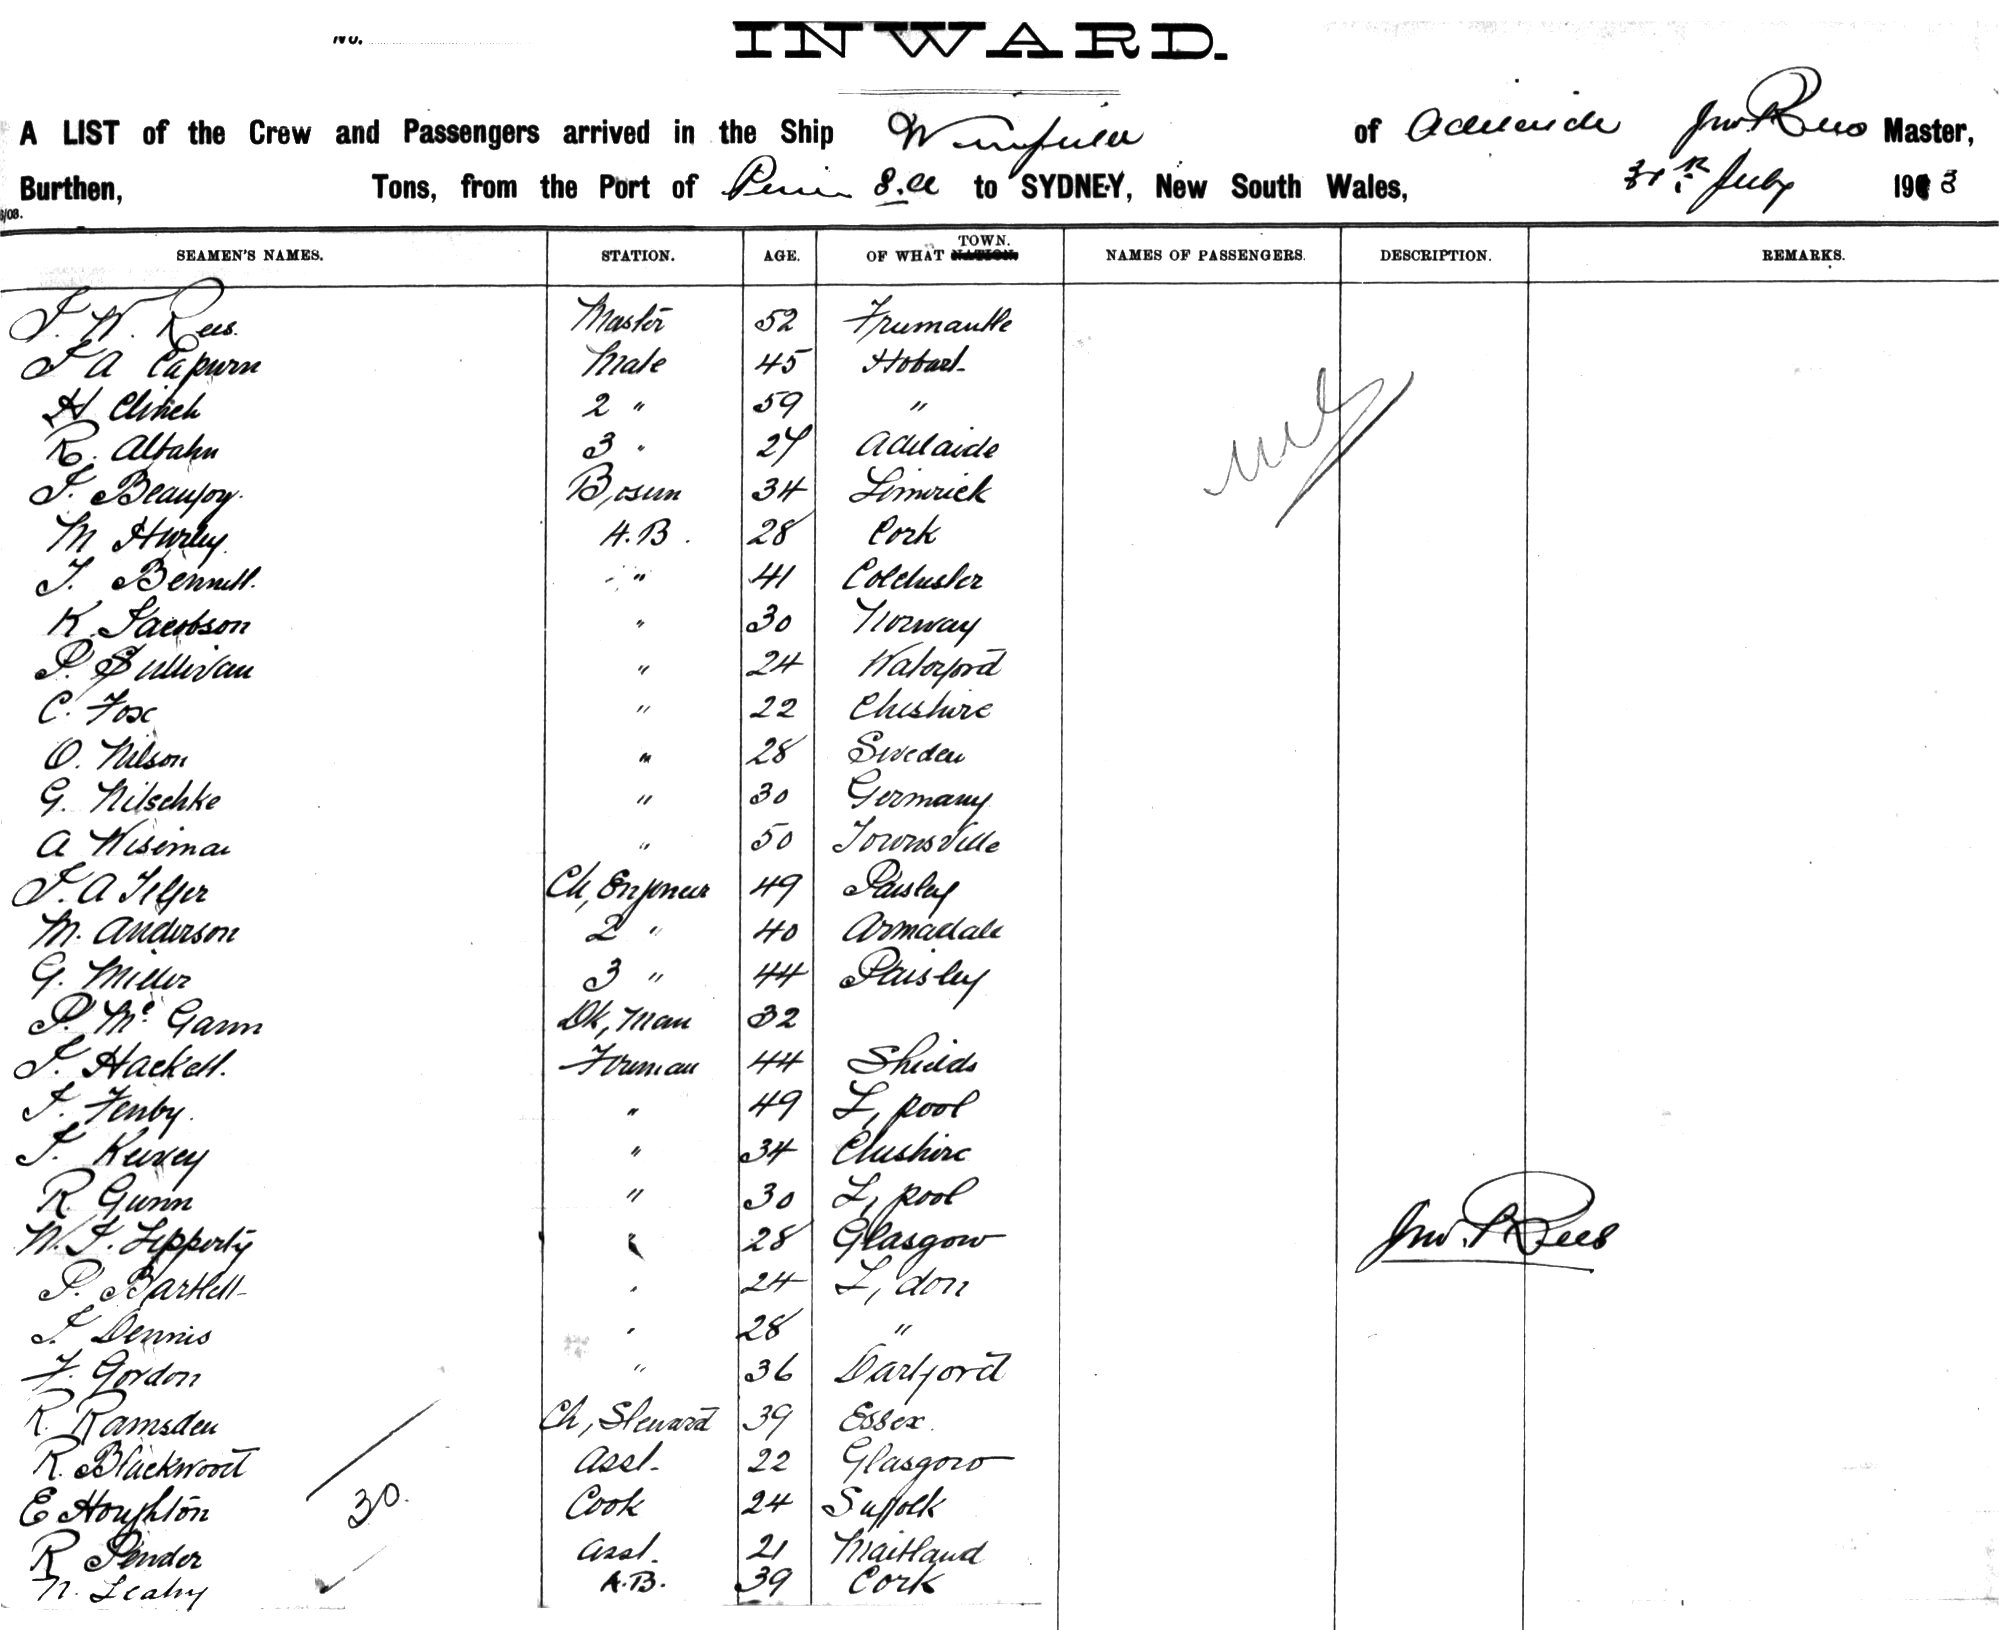 No.
INWARD.
A LIST of the Crew and Passengers arrived in the Ship Winfield of Adelaide Jno. Rees Master,
Burthen, Tons, from the Port of Pirie S.A to SYDNEY, New South Wales, 31st July 1913
/08.
SEAMEN'S NAMES. STATION. AGE. OF WHAT NATION TOWN. NAMES OF PASSENGERS. DESCRIPTION. REMARKS.
J. W. Rees. Master 52 Fremantle
J A Capurn Mate 45 Hobart
H Clinch 2 " 59 "
R. Altahn 3 " 27 Adelaide
J. Beaujoy. B,osun 34 Limerick
M Hurley. A.B. 28 Cork
J. Bennett. " 41 Colchester
K Jacobson " 30 Norway
P. Sullivan " 24 Waterford
C. Fox " 22 Cheshire
O. Nilson " 28 Sweden
G. Nitschke " 30 Germany
A Wiseman " 50 Townsville
J. A Telfer Ch, Engineer 49 Paisley
M. Anderson 2 " 40 Armadale
G. Miller 3 " 44 Paisley
P. Mc Gann Dk, Man 32
J. Hackett. Fireman 44 Shields
J. Fenby. " 49 L,pool
J. " 34 Cheshire
R. Gunn " 30 L,pool
W. J. " 28 Glasgow
P. Bartlett " 24 L,don
J. Dennis " 28 "
F. Gordon " 36 Dartford
R. Ramsden Ch, Steward 39 Essex.
R. Blackwood Asst. 22 Glasgow
E Houghton Cook 24 Suffolk
R Pender Asst. 21 Maitland
N. Leahy A.B. 39 Cork
30.
Jno. Rees